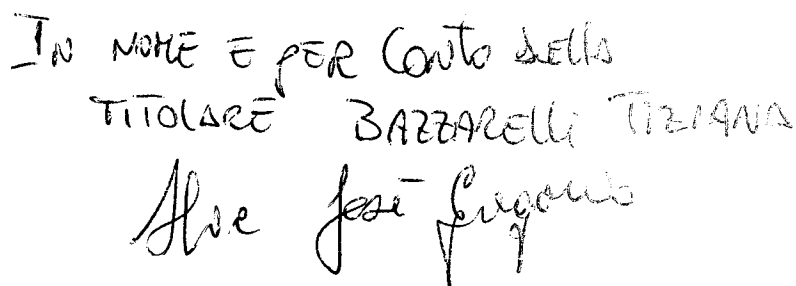 IN NOME E PER CONTO DELLA
TITOLARE BAZZARELLI TIZIANA
José